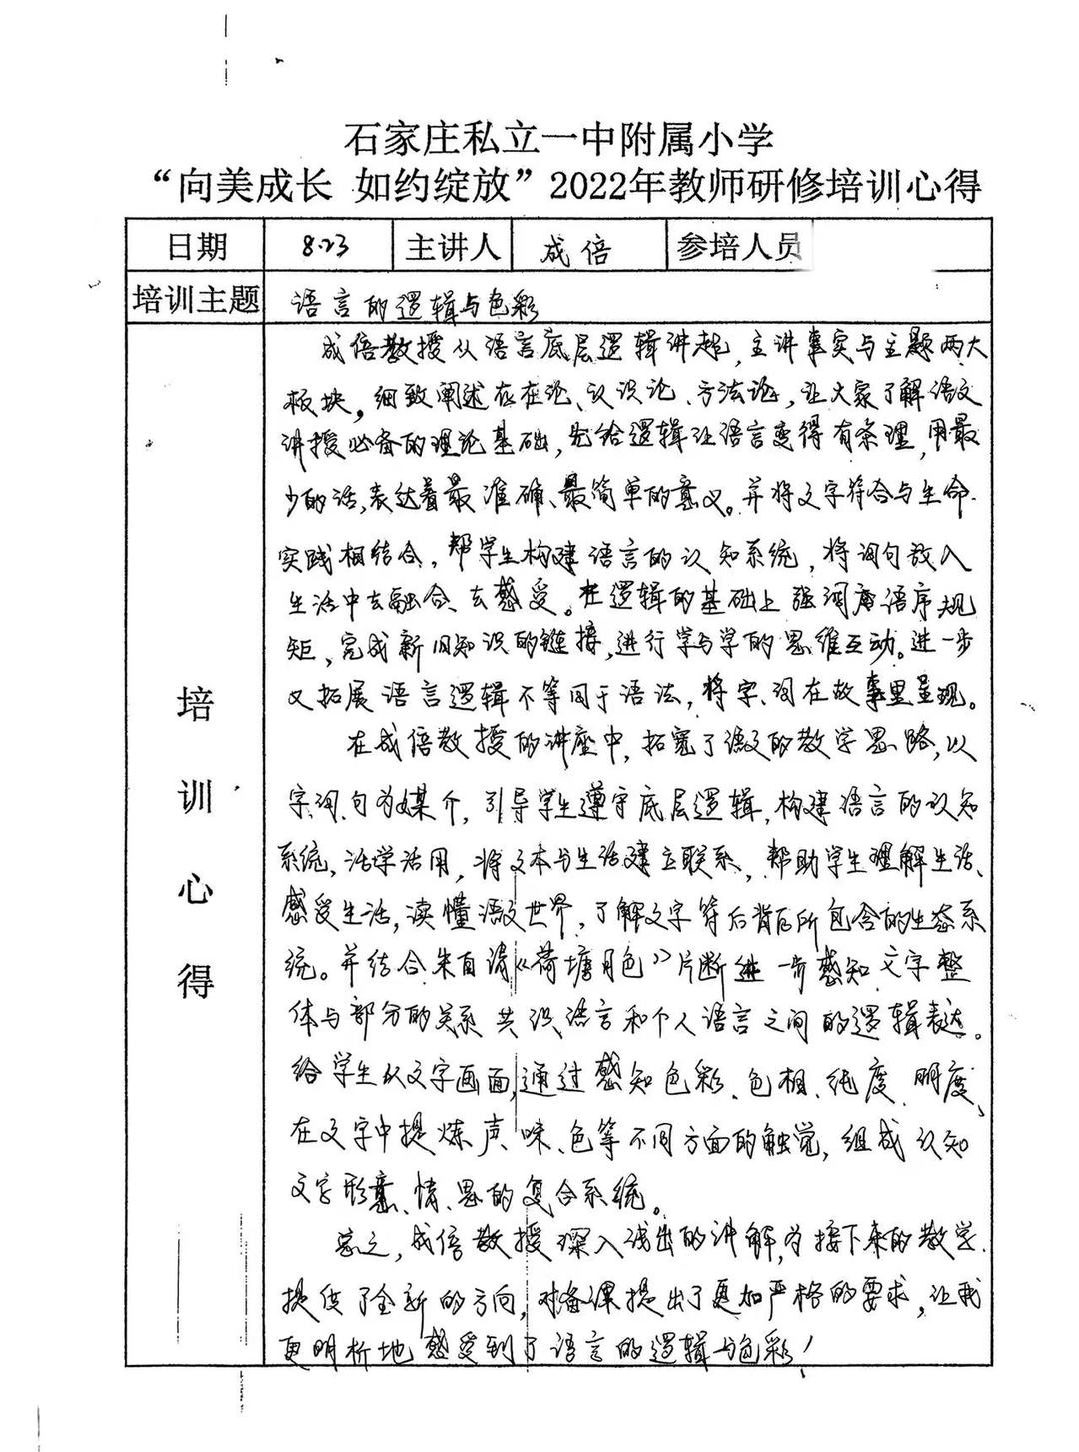 石家庄私立一中附属小学
“向美成长 如约绽放”2022年教师研修培训心得
日期 8.23 主讲人 成倍 参培人员
培训主题 语言的逻辑与色彩
培训心得
成倍教授从语言底层逻辑讲起,主讲事实与主题两大
板块。细致阐述存在论、认识论、方法论,让大家了解语文
讲授必备的理论基础,先给逻辑让语言变得有条理,用最
少的话,表达着最准确、最简单的意义。并将文字符合与生命
实践相结合,帮学生构建语言的认知系统,将词句放入
生活中去融合、去感受。在逻辑的基础上强调语序规
矩,完成新旧知识的链接,进行学与学的思维互动。进一步
又拓展语言逻辑不等同于语法,将字、词在故事里呈现。
在成倍教授的讲座中,拓宽了语文的教学思路,以
字、词、句为媒介,引导学生遵守底层逻辑,构建语言的认知
系统,活学活用,将文本与生活建立联系,帮助学生理解生活、
感受生活,读懂语文世界,了解文字符后背后所包含的生态系
统。并结合朱自清《荷塘月色》片断进一步感知文字整
体与部分的关系 共识语言和个人语言之间的逻辑表达。
给学生从文字画面,通过感知色彩、色相、纯度、明度、
在文字中提炼声、味、色等不同方面的触觉,组成认知
文字形意、情、思的复合系统。
总之,成倍教授深入浅出的讲解,为接下来的教学
提供了全新的方向,对备课提出了更加严格的要求,让我
更明析地感受到了语言的逻辑与色彩!